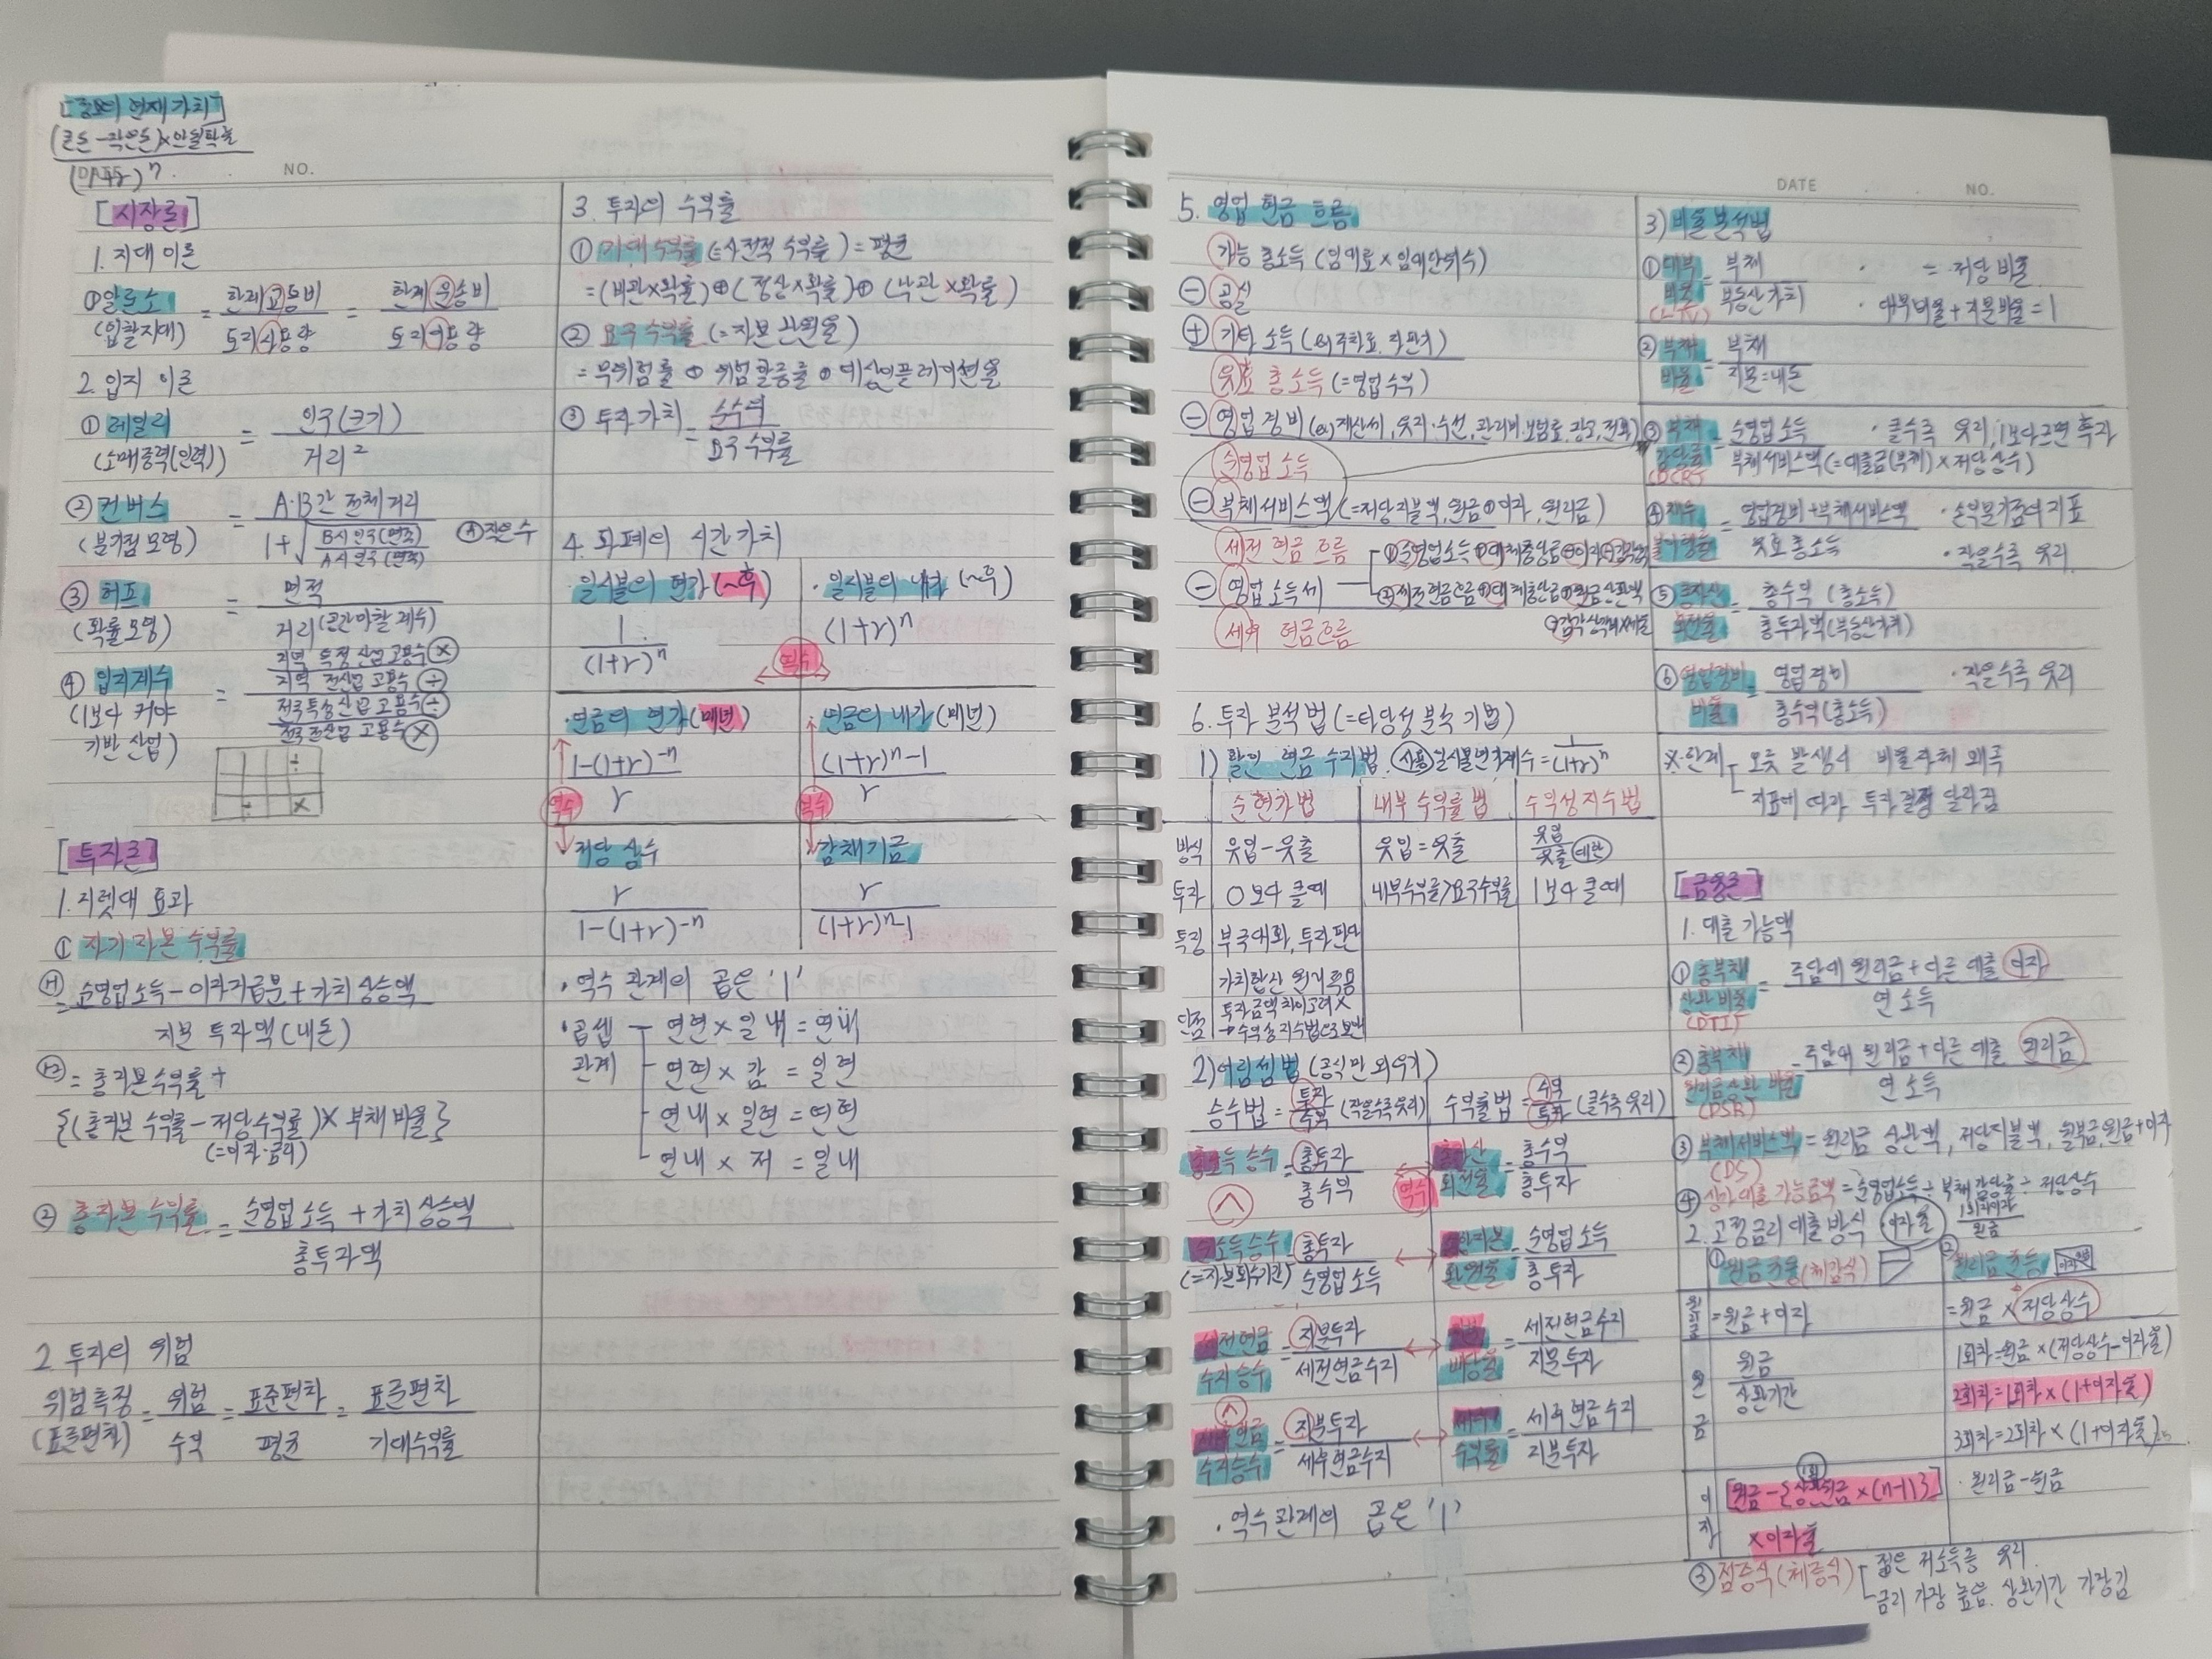 [정보의 현재가치]
(큰돈-작은돈)×안될확률
(1+r)ⁿ
DATE
NO.
[시장론]
1. 지대 이론
①알론소
(입찰지대)
= 한계교통비 / 토지사용량 = 한계운송비 / 토지이용량
2. 입지 이론
① 레일리
(소매중력(인력))
= 인구(크기) / 거리²
② 컨버스
(분기점 모형)
= A·B간 전체거리 / 1+√(B시 인구(면적) / A시 인구(면적))
작은수
③ 허프
(확률모형)
= 면적 / 거리(공간마찰계수)
④ 입지계수
(1보다 커야
기반 산업)
= 지역 특정산업 고용수 ⓧ
지역 전산업 고용수 ÷
전국특정산업 고용수 ÷
전국 전산업 고용수 ⓧ
÷
÷ ×
[투자론]
1. 지렛대 효과
① 자기자본수익률
= 순영업소득-이자지급분+가치상승액
지분 투자액(내돈)
= 총자본수익률+
{(총자본 수익률-저당수익률)× 부채비율}
(=이자·금리)
② 총자본 수익률 = 순영업소득+가치상승액
총투자액
2. 투자의 위험
위험측정 = 위험 = 표준편차 = 표준편차
(표준편차) 수익 평균 기대수익률
3. 투자의 수익률
① 기대수익률(=사전적 수익률)=평균
=(비관×확률)⊕(정상×확률)⊕(낙관×확률)
② 요구수익률(=자본환원율)
=무위험률 ⊕ 위험할증률 ⊕ 예상인플레이션율
③ 투자가치 = 순수익
요구수익률
4. 화폐의 시간가치
·일시불의 현가(~후)
1 / (1+r)ⁿ
·일시불의 내가(~후)
(1+r)ⁿ
역수
·연금의 현가(매년)
1-(1+r)⁻ⁿ / r
·연금의 내가(매년)
(1+r)ⁿ-1 / r
역수
역수
저당상수
r / 1-(1+r)⁻ⁿ
감채기금
r / (1+r)ⁿ-1
·역수 관계의 곱은 '1'
·곱셈 관계
연현×일내=연내
연현×감=일현
연내×일현=연현
연내×저=일내
DATE
NO.
5. 영업 현금 흐름
가능 총소득(임대료×임대단위수)
⊖ 공실
⊕ 기타 소득(ex주차료, 자판기)
유효 총소득(=영업수익)
⊖ 영업경비(ex)재산세, 유지·수선, 관리비·보험료, 광고, 전화)
순영업소득
⊖ 부채서비스액(=저당지불액, 원금⊕이자, 원리금)
세전 현금 흐름
⊖ 영업소득세
①순영업소득⊕대체충당금⊖이자⊖감가상각
②세전현금흐름⊕대체충당금⊕원금상환액
⊖감가상각비×세율
세후 현금흐름
6. 투자 분석법(=타당성 분석 기법)
1) 할인 현금 수지법 사용 일시불현가계수=1 / (1+r)ⁿ
순현가법 내부 수익률법 수익성지수법
방식 유입-유출 유입=유출 유입 / 유출 대한
투자 0보다 클때 내부수익률>요구수익률 1보다 클때
특징 부극대화, 투자판단
가치합산 원리 적용
단점 투자금액 차이 고려×
→수익성지수법으로 보완
2) 어림셈법(공식만 외우기)
승수법=투자 / 수익(작을수록 유리) 수익률법=수익 / 투자(클수록 유리)
총소득 승수=총투자 / 총수익 역수 총자산 회전율=총수익 / 총투자
순소득승수
(=자본회수기간)
=총투자 / 순영업소득 ↔ 종합자본 환원율=순영업소득 / 총투자
세전현금
수지승수=지분투자 / 세전현금수지 ↔ 지분 배당률=세전현금수지 / 지분투자
세후현금
수지승수=지분투자 / 세후현금수지 ↔ 세후 수익률=세후현금수지 / 지분투자
·역수관계의 곱은 '1'
3) 비율분석법
①대부
비율
(LTV)
=부채 / 부동산가치
= 저당비율
·대부비율+지분비율=1
②부채
비율
=부채 / 지분=내돈
③부채
감당률
(DCR)
=순영업소득 ·클수록 유리, 1보다크면 흑자
부채서비스액(=대출금(부채)×저당상수)
④채무
불이행률
=영업경비+부채서비스액 / 유효총소득
·손익분기점의 지표
·작을수록 유리
⑤총자산
회전율
=총수익(총소득)
총투자액(부동산가치)
⑥영업경비
비율
=영업경비
총수익(총소득)
·작을수록 유리
※한계 오류 발생시 비율자체 왜곡
지표에 따라 투자결정 달라짐
[금융론]
1. 대출 가능액
①총부채
상환비율
(DTI)
=주담대 원리금+다른 대출 이자
연 소득
②총부채
원리금상환 비율
(DSR)
=주담대 원리금+다른 대출 원리금
연 소득
③부채서비스액=원리금 상환액, 저당지불액, 월부금, 원금+이자
(DS)
④상가대출가능금액=순영업소득÷부채감당률÷저당상수
2. 고정금리 대출 방식 이자율 1회차이자 / 원금
①원금균등(체감식)
②원리금균등
원리금 =원금+이자 =원금×저당상수
원금 원금 / 상환기간
1회차=원금×(저당상수-이자율)
2회차=1회차×(1+이자율)
3회차=2회차×(1+이자율)
이자 [원금-{상환원금×(n-1)}]
×이자율
·원리금-원금
③점증식(체증식) 젊은 저소득층 유리.
금리 가장 높음. 상환기간 가장김